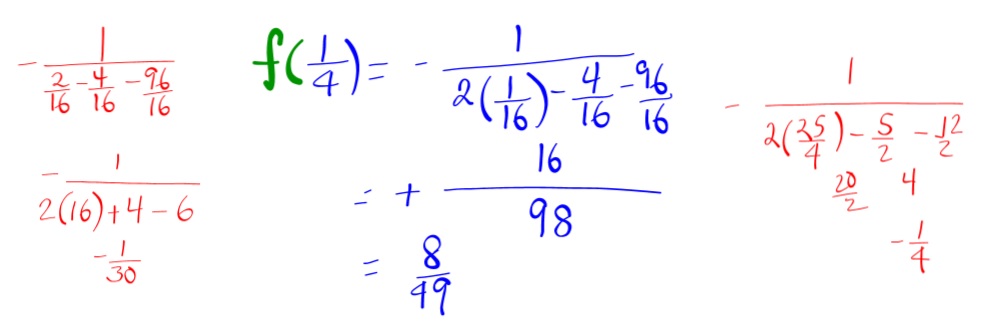 - 1 / (2/16 - 4/16 - 96/16)
- 1 / (2(16) + 4 - 6)
- 1/30
f(1/4) = - 1 / (2(1/16) - 4/16 - 96/16)
= + 16/98
= 8/49
- 1 / (2(25/4) - 5/2 - 12/2)
20/2 4
- 1/4